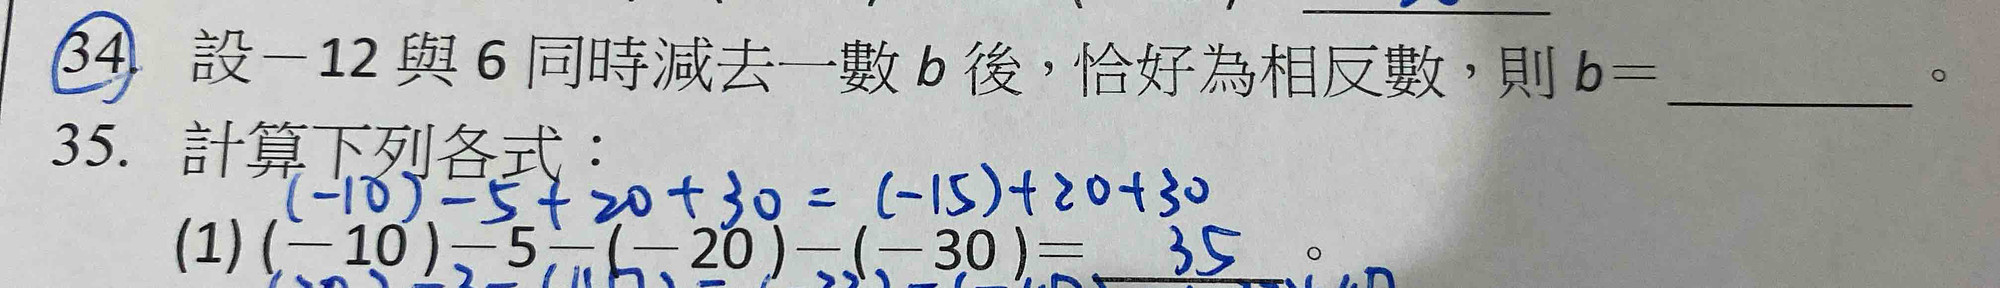 34. 設－12 與 6 同時減去一數 b 後，恰好為相反數，則 b＝________。
35. 計算下列各式：
(-10)-5+20+30 = (-15)+20+30
(1) (－10)－5－(－20)－(－30)＝ 35 。